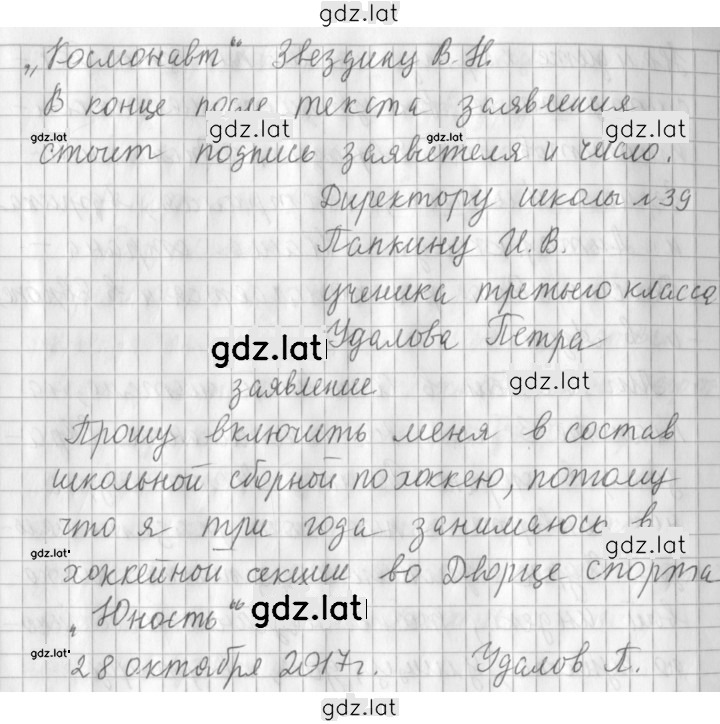 gdz.lat
„Космонавт“ Звездину В.Н.
В конце после текста заявления
gdz.lat gdz.lat gdz.lat gdz.lat
стоит подпись заявителя и число.
Директору школы №39
Папкину И.В.
ученика третьего класса
Удалова Петра
gdz.lat
заявление
gdz.lat
Прошу включить меня в состав
школьной сборной по хоккею, потому
что я три года занимаюсь в
gdz.lat gdz.lat
хоккейной секции во Дворце спорта
„Юность“
gdz.lat
gdz.lat
28 октября 2017г. Удалов П.
gdz.lat